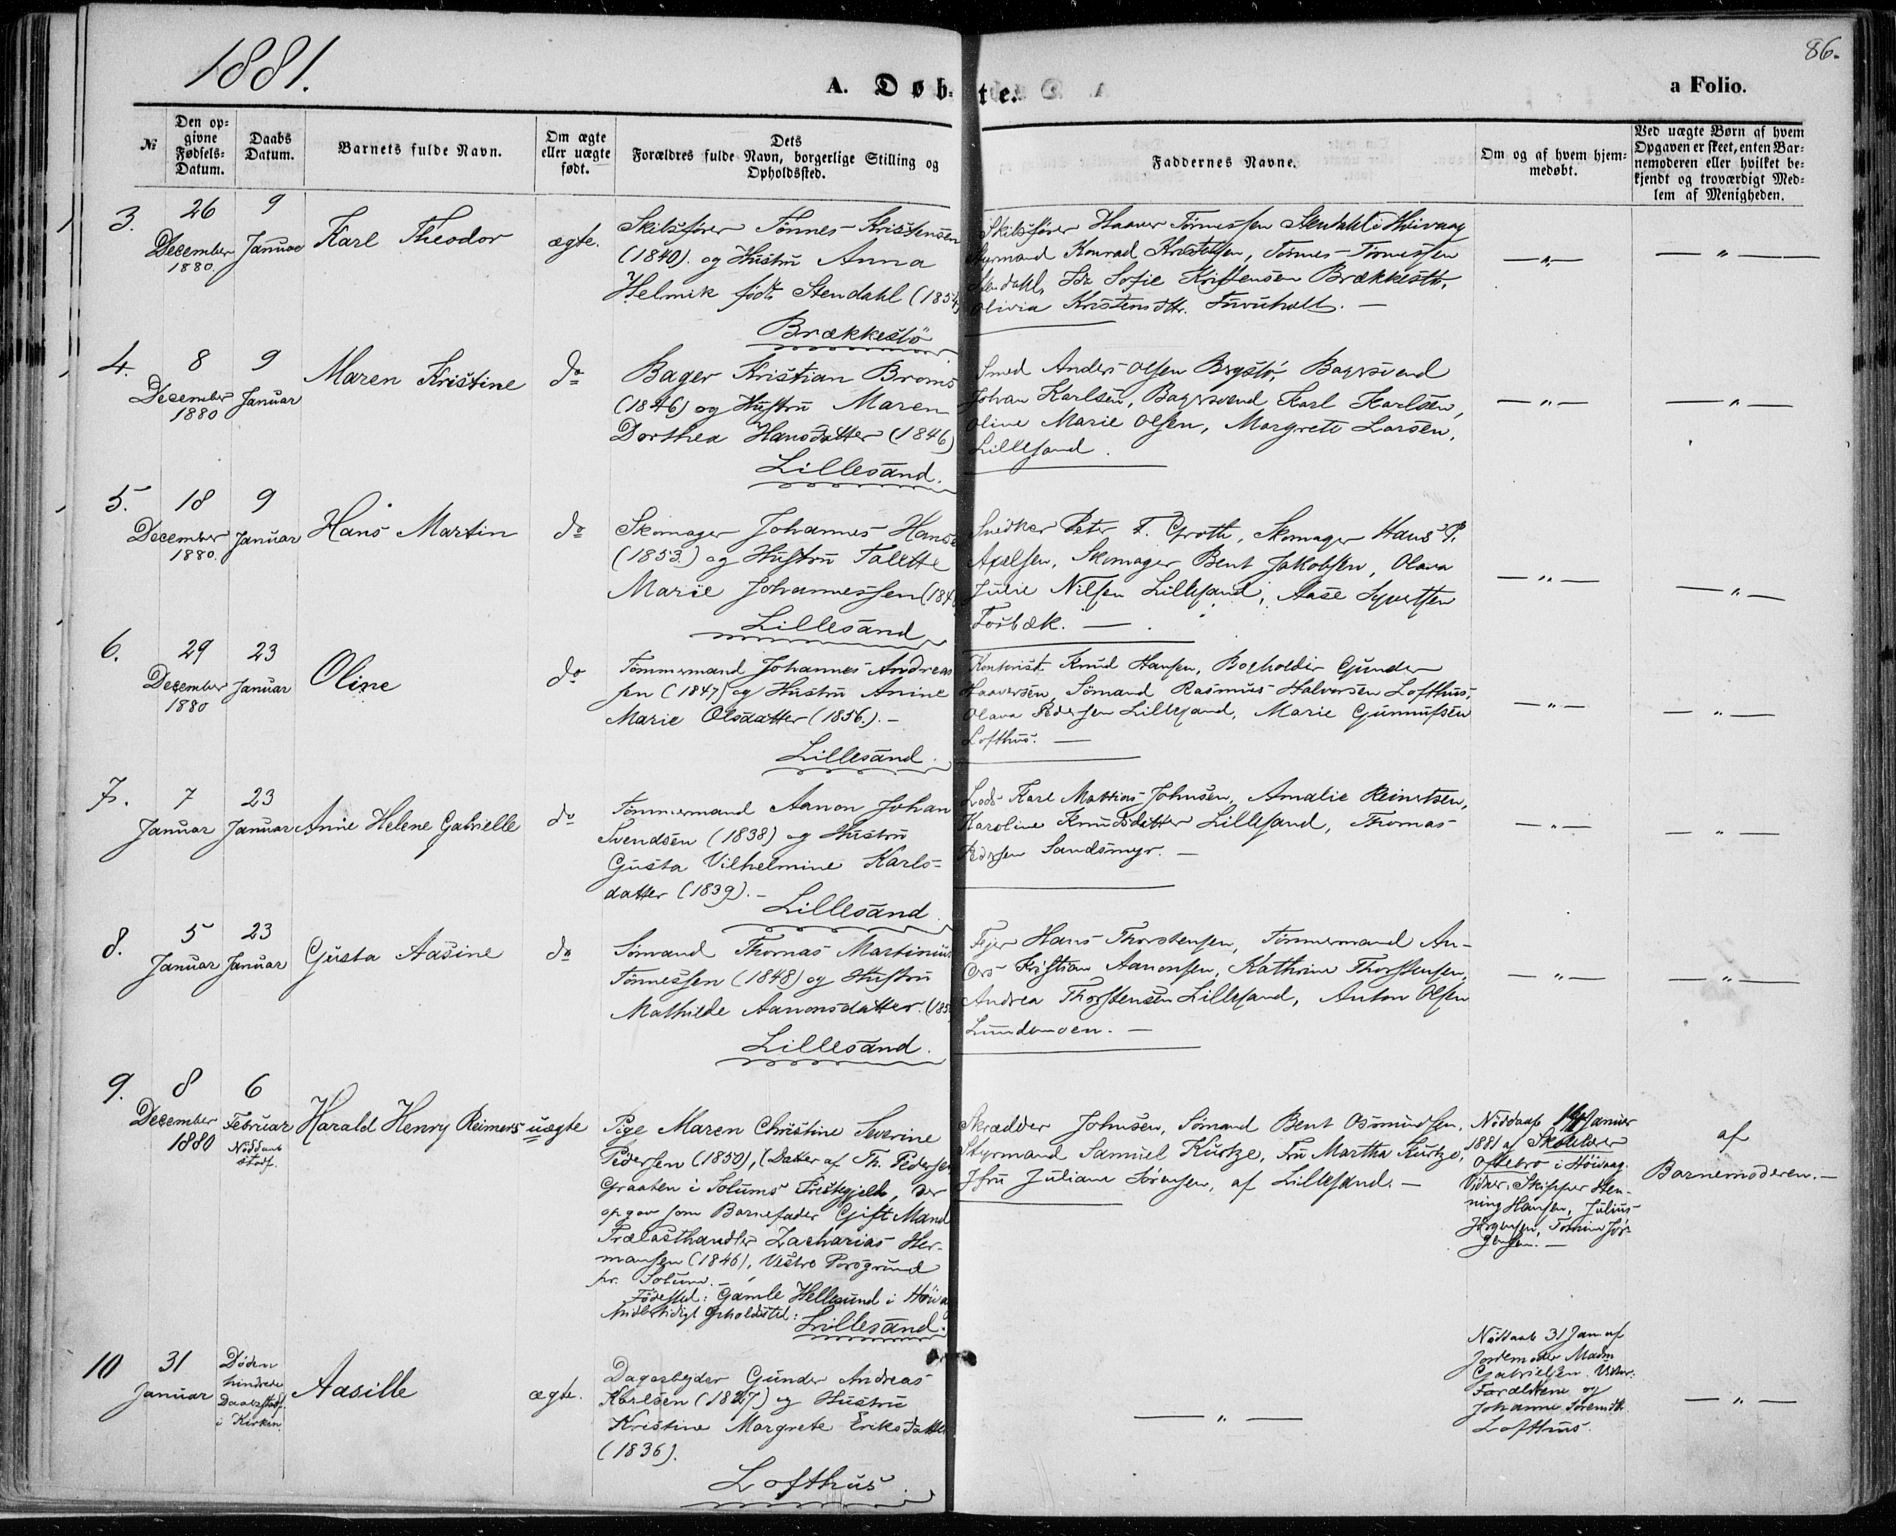 1881.
86.
A. Døb-
te.
a Folio.
№
Den op-
givne
Fødsels-
Datum.
Daabs
Datum.
Barnets fulde Navn.
Om ægte
eller uægte
født.
Dets
Forældres fulde Navn, borgerlige Stilling og
Opholdssted.
Faddernes Navne.
Om og af hvem hjem-
medøbt.
Ved uægte Børn af hvem
Opgaven er skeet, enten Bar-
nemoderen eller hvilket be-
kjendt og troværdigt Med-
lem af Menigheden.
3.
26
December
1880.
9
Januar
Karl Theodor
ægte.
Skibsfører Tønnes Kristensen
(1840). og Hustru Anna
Helmik født Stendahl (1854)
Brækkestø
Skibsfører Haaver Tønnessen Stendahl i Høivaag
Styrmand Konrad Kristensen, Tønnes Tønnessen
Stendahl, Ida Sofie Kristensen Brækkestø,
Olivia Kristensdtr. Furuholt. —
— „ —
— „ —
4.
8
December
1880
9
Januar
Maren Kristine
do
Bager Kristian Broms
(1846) og Hustru Maren
Dorthea Hansdatter (1846)
Lillesand.
Smed Anders Olsen Brgstø, Bagersvend
Johan Karlsen, Bagersvend Karl Karlsen,
Oline Marie Olsen, Margrete Larsen,
Lillesand.
— „ —
— „ —
5.
18
December
1880.
9
Januar
Hans Martin
do
Skomager Johannes Hansen
(1853) og Hustru Talette
Marie Johannessen (184
Lillesand
Snedker Peter F. Groth, Skomager Hans P.
Axelsen, Skomager Bent Jakobsen, Olava
Julie Nilsen Lillesand, Aase Syvertsen
Fosbæk. —
— „ —
— „ —
6.
29
December
1880
23
Januar
Oline
do
Tømmermand Johannes Andreas
sen (1847) og Hustru Anine
Marie Olsdatter (1856). —
Lillesand.
Kontorist Knud Hansen, Bogholder Gunder
Haaversen, Sømand Rasmus Halvorsen Lofthus,
Olava Pedersen Lillesand, Marie Gunnufsen
Lofthus. —
— „ —
— „ —
7.
7
Januar
23
Januar
Anne Helene Gabrielle
do
Tømmermand Aanon Johan
Svendsen (1838) og Hustru
Gusta Vilhelmine Karls-
datter (1839). —
Lillesand.
Lods Karl Mathias Johnsen, Amalie Reinertsen,
Karoline Knudsdatter Lillesand, Thomas
Pedersen Sandsmyr. —
— „ —
— „ —
8.
5
Januar
23
Januar
Gusta Aasine
do
Sømand Thomas Martinius
Tønnessen (1848) og Hustru
Mathilde Aanonsdatter. (185
Lillesand.
Fejer Hans Thorstensen, Tømmermand An-
ders Kristian Aanonsen, Kathrine Thorstensen,
Andrea Thorstensen Lillesand, Anton Olsen
Lundemoen. —
— „ —
— „ —
9.
8
December
1880
6
Februar
Nøddaab
stadf.
Harald Henry Reimers
uægte
Pige Maren Christine Severine
Pedersen (1850), (Datter af Th. Pedersen
Graaten i Solums Præstegjeld, der
opgav som Barnefader Gift Mand
Trælasthandler Zacharias Her-
mansen (1846), Vestre Porsgrund
pr. Solum.
Fødested: Gamle Hellesund i Høivaag
Midlertidigt Opholdssted:
Lillesand.
Skrædder Johnsen, Sømand Bent Osmundsen,
Styrmand Samuel Kurtze, Fru Martha Kurtze,
Jfru Juliane Sørensen, af Lillesand. —
Nøddaab 14 Januar
1881 af Skolelærer
Oftebro i Høivaag.
Vidner: Skipper Hen-
ning Hansen, Julius
Jørgensen, Tomine Jør-
gensen. —
af
Barnemoderen. —
10
31
Januar
Døden
hindrede
Daabsstadf.
i Kirken.
Aasille
ægte.
Dagarbeider Gunder Andreas
Karlsen (1827) og Hustru
Kristine Margrete Eriksdatter
(1836).
Lofthus.
— „ —
Nøddaab 31 Jan. af
Jordemoder Madm
Gabrielsen. Vidner:
Forældrene og
Johanne Sørensdtr.
Lofthus.
— „ —